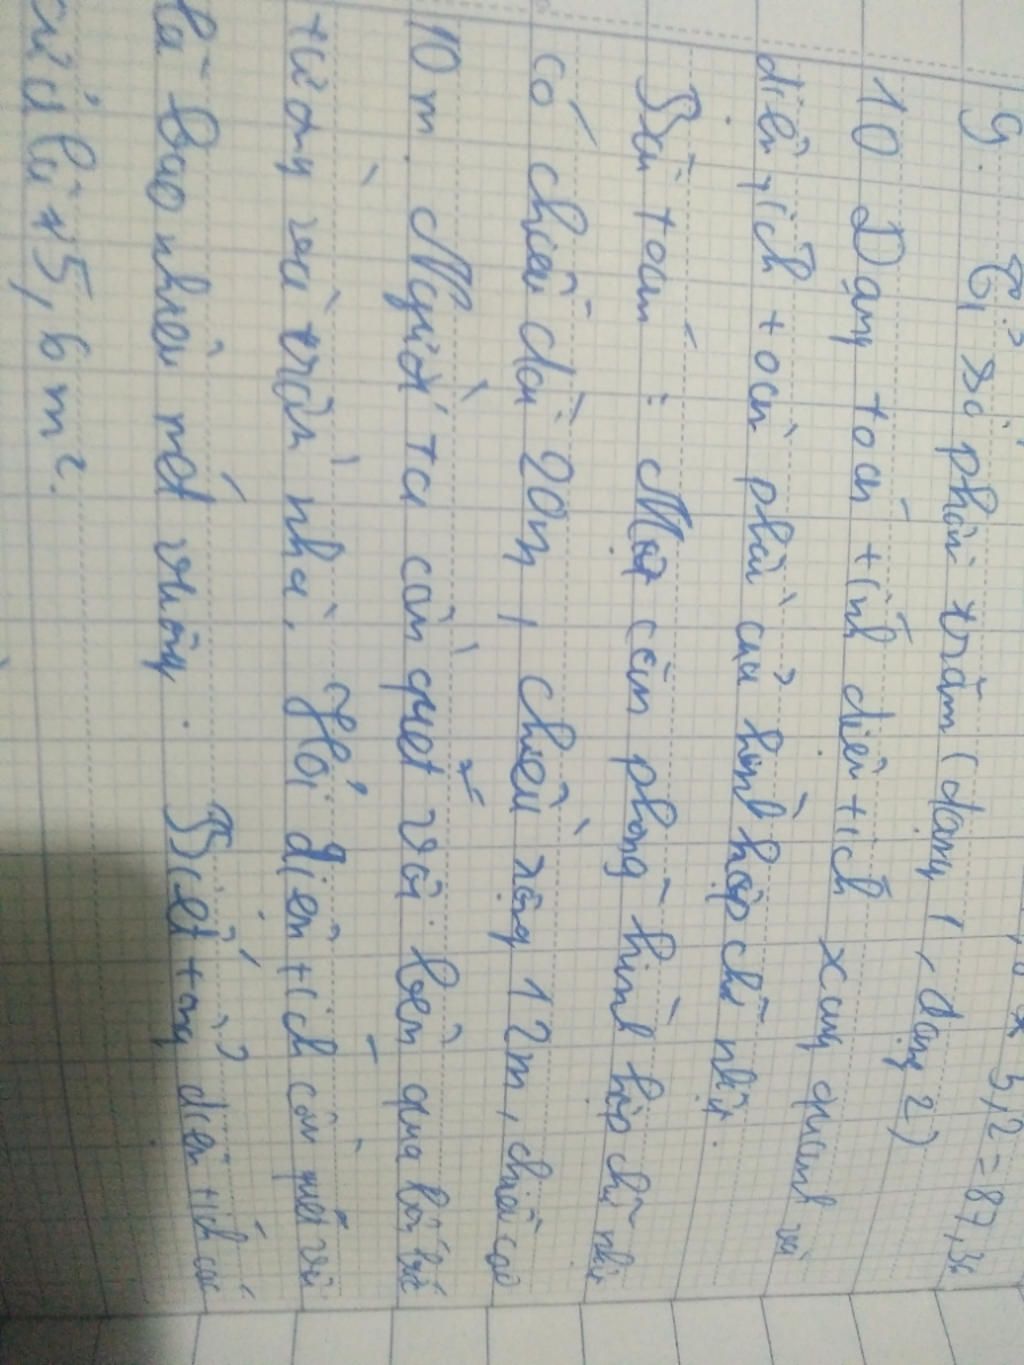 5,2 = 87,36
9. Tỉ số phần trăm (dạng 1, dạng 2)
10 Dạng toán tính diện tích xung quanh và
diện tích toàn phần của hình hộp chữ nhật.
Bài toán : Một căn phòng hình hộp chữ nhật
có chiều dài 20m, chiều rộng 12m, chiều cao
10 m. Người ta cần quét vôi bên qua bốn bức
tường và trần nhà. Hỏi diện tích cần quét vôi
là bao nhiêu mét vuông. Biết tổng diện tích các
cửa là 15,6 m².